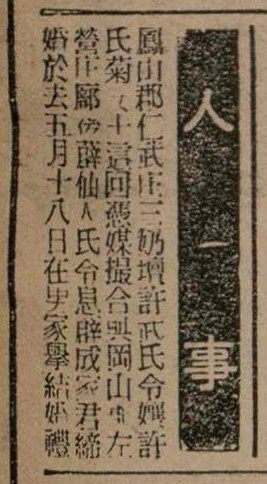 人一事
鳳山郡仁武庄三奶壇許武氏令孃許
氏菊女士這回憑媒撮合與岡山郡左
營庄廍後薛仙人氏令息薛成家君締
婚於去五月十八日在男家擧結婚禮